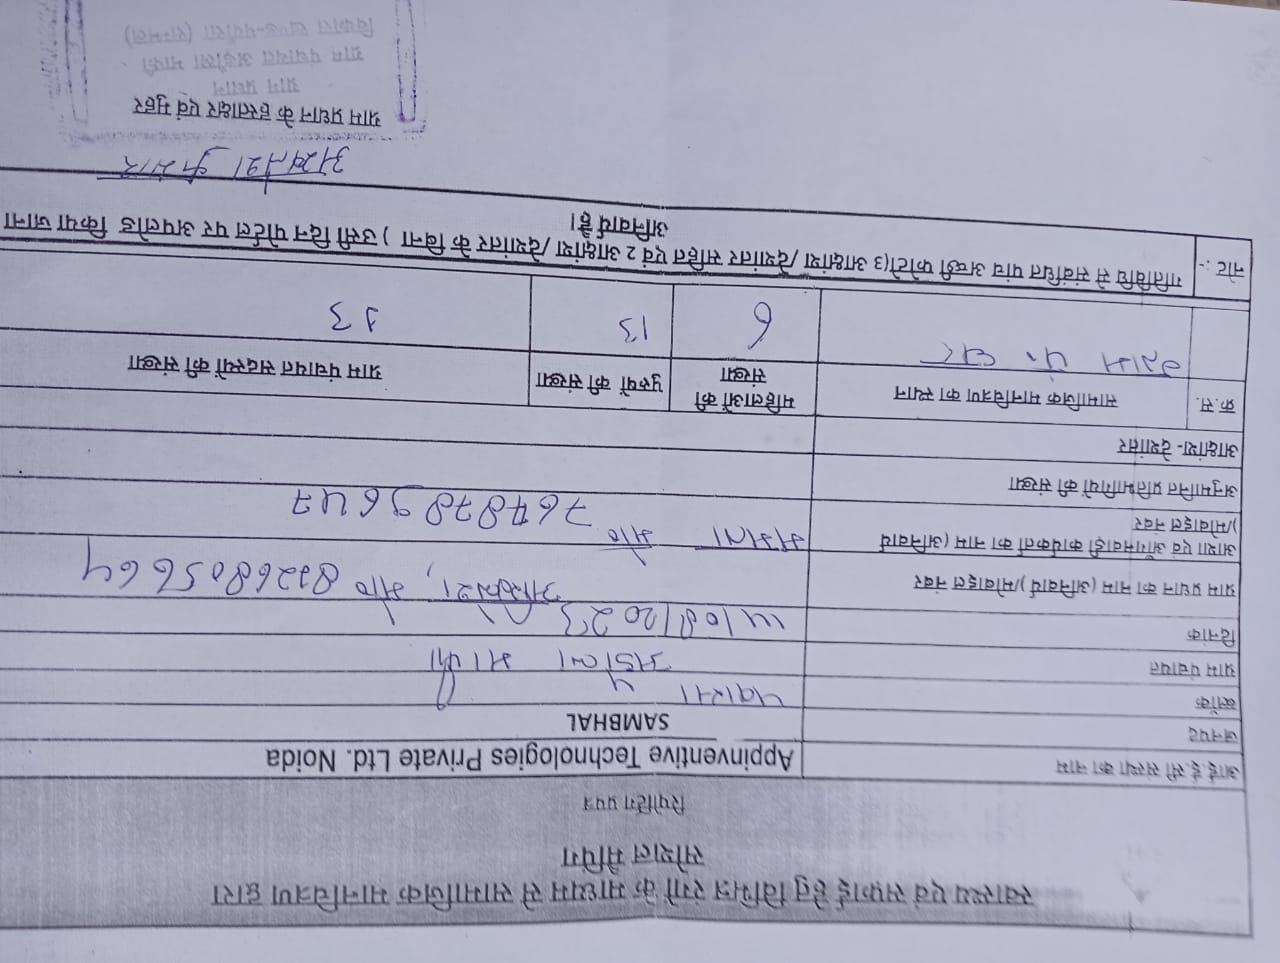 स्वास्थ्य एवं सफाई हेतु विभिन्न रंगों के माध्यम से सामाजिक मानचित्रण द्वारा
सोशल मैपिंग
रिपोर्टिंग प्रपत्र
आई.ई.सी संस्था का नाम Appinventive Technologies Private Ltd. Noida
जनपद SAMBHAL
ब्लॉक पवांसा
ग्राम पंचायत माफी
दिनांक /08/2023
ग्राम प्रधान का नाम (अनिवार्य)/मोबाइल नंबर मो०
आशा एवं आँगनवाड़ी कार्यकर्ता का नाम (अनिवार्य मो०
)/मोबाइल नंबर
अनुमानित प्रतिभागियों की संख्या
आक्षांश- देशांतर
क्र.स. सामाजिक मानचित्रण का स्थान महिलाओं की संख्या पुरुषों की संख्या ग्राम पंचायत सदस्यों की संख्या
6 13
नोट :- गतिविधि से संबंधित पांच अच्छी फोटो(3 आक्षांश /देशांतर सहित एवं 2 आक्षांश /देशांतर के बिना ) उसी दिन पोर्टल पर अपलोड किया जाना
अनिवार्य है।
ग्राम प्रधान के हस्ताक्षर एवं मुहर
ग्राम प्रधान
ग्राम पंचायत माफी